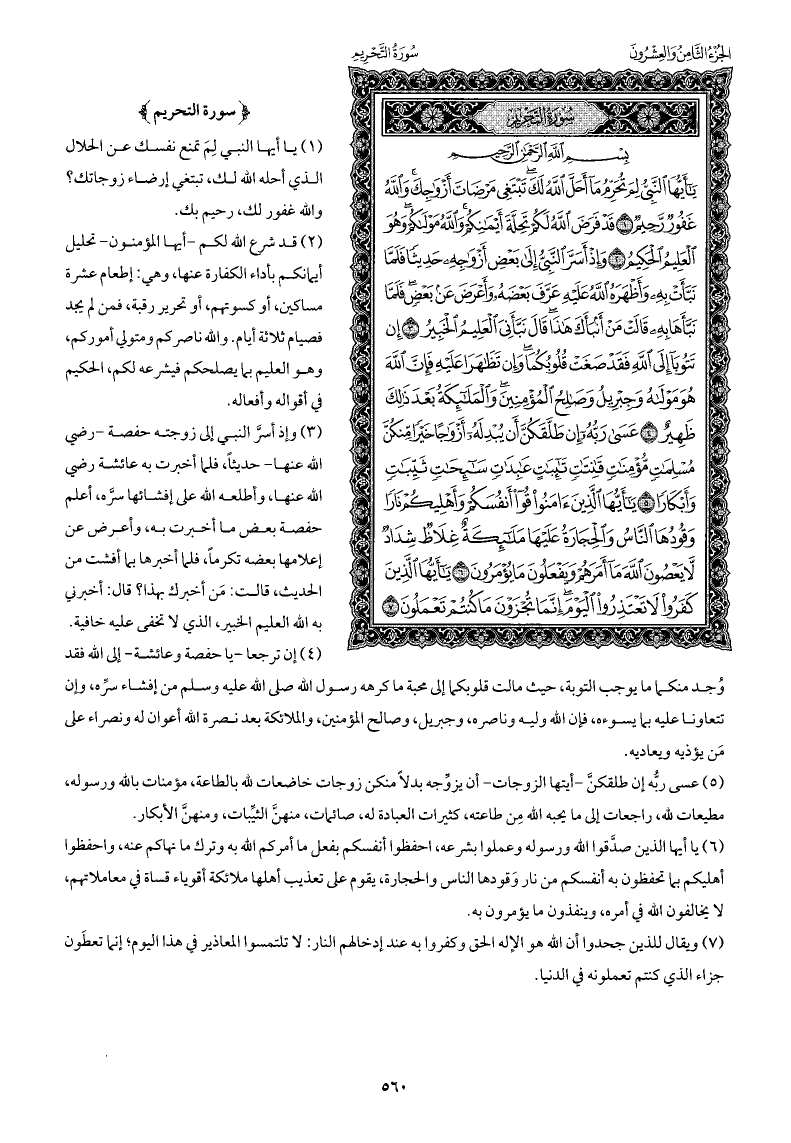 الجُزْءُ الثَّامِنُ وَالعِشْرُونَ
سُورَةُ التَّحْرِيمِ
سُورَةُ التَّحْرِيمِ
بِسْمِ اللَّهِ الرَّحْمَٰنِ الرَّحِيمِ
يَٰٓأَيُّهَا ٱلنَّبِيُّ لِمَ تُحَرِّمُ مَآ أَحَلَّ ٱللَّهُ لَكَۖ تَبۡتَغِي مَرۡضَاتَ أَزۡوَٰجِكَۚ وَٱللَّهُ
غَفُورٞ رَّحِيمٞ ١ قَدۡ فَرَضَ ٱللَّهُ لَكُمۡ تَحِلَّةَ أَيۡمَٰنِكُمۡۚ وَٱللَّهُ مَوۡلَىٰكُمۡۖ وَهُوَ
ٱلۡعَلِيمُ ٱلۡحَكِيمُ ٢ وَإِذۡ أَسَرَّ ٱلنَّبِيُّ إِلَىٰ بَعۡضِ أَزۡوَٰجِهِۦ حَدِيثٗا فَلَمَّا
نَبَّأَتۡ بِهِۦ وَأَظۡهَرَهُ ٱللَّهُ عَلَيۡهِ عَرَّفَ بَعۡضَهُۥ وَأَعۡرَضَ عَنۢ بَعۡضٖۖ فَلَمَّا
نَبَّأَهَا بِهِۦ قَالَتۡ مَنۡ أَنۢبَأَكَ هَٰذَاۖ قَالَ نَبَّأَنِيَ ٱلۡعَلِيمُ ٱلۡخَبِيرُ ٣ إِن
تَتُوبَآ إِلَى ٱللَّهِ فَقَدۡ صَغَتۡ قُلُوبُكُمَاۖ وَإِن تَظَٰهَرَا عَلَيۡهِ فَإِنَّ ٱللَّهَ
هُوَ مَوۡلَىٰهُ وَجِبۡرِيلُ وَصَٰلِحُ ٱلۡمُؤۡمِنِينَۖ وَٱلۡمَلَٰٓئِكَةُ بَعۡدَ ذَٰلِكَ
ظَهِيرٌ ٤ عَسَىٰ رَبُّهُۥٓ إِن طَلَّقَكُنَّ أَن يُبۡدِلَهُۥٓ أَزۡوَٰجًا خَيۡرٗا مِّنكُنَّ
مُسۡلِمَٰتٖ مُّؤۡمِنَٰتٖ قَٰنِتَٰتٖ تَٰٓئِبَٰتٍ عَٰبِدَٰتٖ سَٰٓئِحَٰتٖ ثَيِّبَٰتٖ
وَأَبۡكَارٗا ٥ يَٰٓأَيُّهَا ٱلَّذِينَ ءَامَنُواْ قُوٓاْ أَنفُسَكُمۡ وَأَهۡلِيكُمۡ نَارٗا
وَقُودُهَا ٱلنَّاسُ وَٱلۡحِجَارَةُ عَلَيۡهَا مَلَٰٓئِكَةٌ غِلَاظٞ شِدَادٞ
لَّا يَعۡصُونَ ٱللَّهَ مَآ أَمَرَهُمۡ وَيَفۡعَلُونَ مَا يُؤۡمَرُونَ ٦ يَٰٓأَيُّهَا ٱلَّذِينَ
كَفَرُواْ لَا تَعۡتَذِرُواْ ٱلۡيَوۡمَۖ إِنَّمَا تُجۡزَوۡنَ مَا كُنتُمۡ تَعۡمَلُونَ ٧
﴿ سورة التحريم ﴾
(١) يا أيها النبي لِمَ تمنع نفسك عن الحلال
الذي أحله الله لك، تبتغي إرضاء زوجاتك؟
والله غفور لك، رحيم بك.
(٢) قد شرع الله لكم -أيها المؤمنون- تحليل
أيمانكم بأداء الكفارة عنها، وهي: إطعام عشرة
مساكين، أو كسوتهم، أو تحرير رقبة، فمن لم يجد
فصيام ثلاثة أيام. والله ناصركم ومتولي أموركم،
وهو العليم بما يصلحكم فيشرعه لكم، الحكيم
في أقواله وأفعاله.
(٣) وإذ أسرَّ النبي إلى زوجته حفصة -رضي
الله عنها- حديثاً، فلما أخبرت به عائشة رضي
الله عنها، وأطلعه الله على إفشائها سرَّه، أعلم
حفصة بعض ما أخبرت به، وأعرض عن
إعلامها بعضه تكرماً، فلما أخبرها بما أفشت من
الحديث، قالت: مَن أخبرك بهذا؟ قال: أخبرني
به الله العليم الخبير، الذي لا تخفى عليه خافية.
(٤) إن ترجعا -يا حفصة وعائشة- إلى الله فقد
وُجد منكما ما يوجب التوبة، حيث مالت قلوبكما إلى محبة ما كرهه رسول الله صلى الله عليه وسلم من إفشاء سرِّه، وإن
تتعاونا عليه بما يسوءه، فإن الله وليه وناصره، وجبريل، وصالح المؤمنين، والملائكة بعد نصرة الله أعوان له ونصراء على
مَن يؤذيه ويعاديه.
(٥) عسى ربُّه إن طلقكنَّ -أيتها الزوجات- أن يزوِّجه بدلاً منكن زوجات خاضعات لله بالطاعة، مؤمنات بالله ورسوله،
مطيعات لله، راجعات إلى ما يحبه الله مِن طاعته، كثيرات العبادة له، صائمات، منهنَّ الثيِّبات، ومنهنَّ الأبكار.
(٦) يا أيها الذين صدَّقوا الله ورسوله وعملوا بشرعه، احفظوا أنفسكم بفعل ما أمركم الله به وترك ما نهاكم عنه، واحفظوا
أهليكم بما تحفظون به أنفسكم من نار وَقودها الناس والحجارة، يقوم على تعذيب أهلها ملائكة أقوياء قساة في معاملاتهم،
لا يخالفون الله في أمره، وينفذون ما يؤمرون به.
(٧) ويقال للذين جحدوا أن الله هو الإله الحق وكفروا به عند إدخالهم النار: لا تلتمسوا المعاذير في هذا اليوم؛ إنما تعطَون
جزاء الذي كنتم تعملونه في الدنيا.
٥٦٠